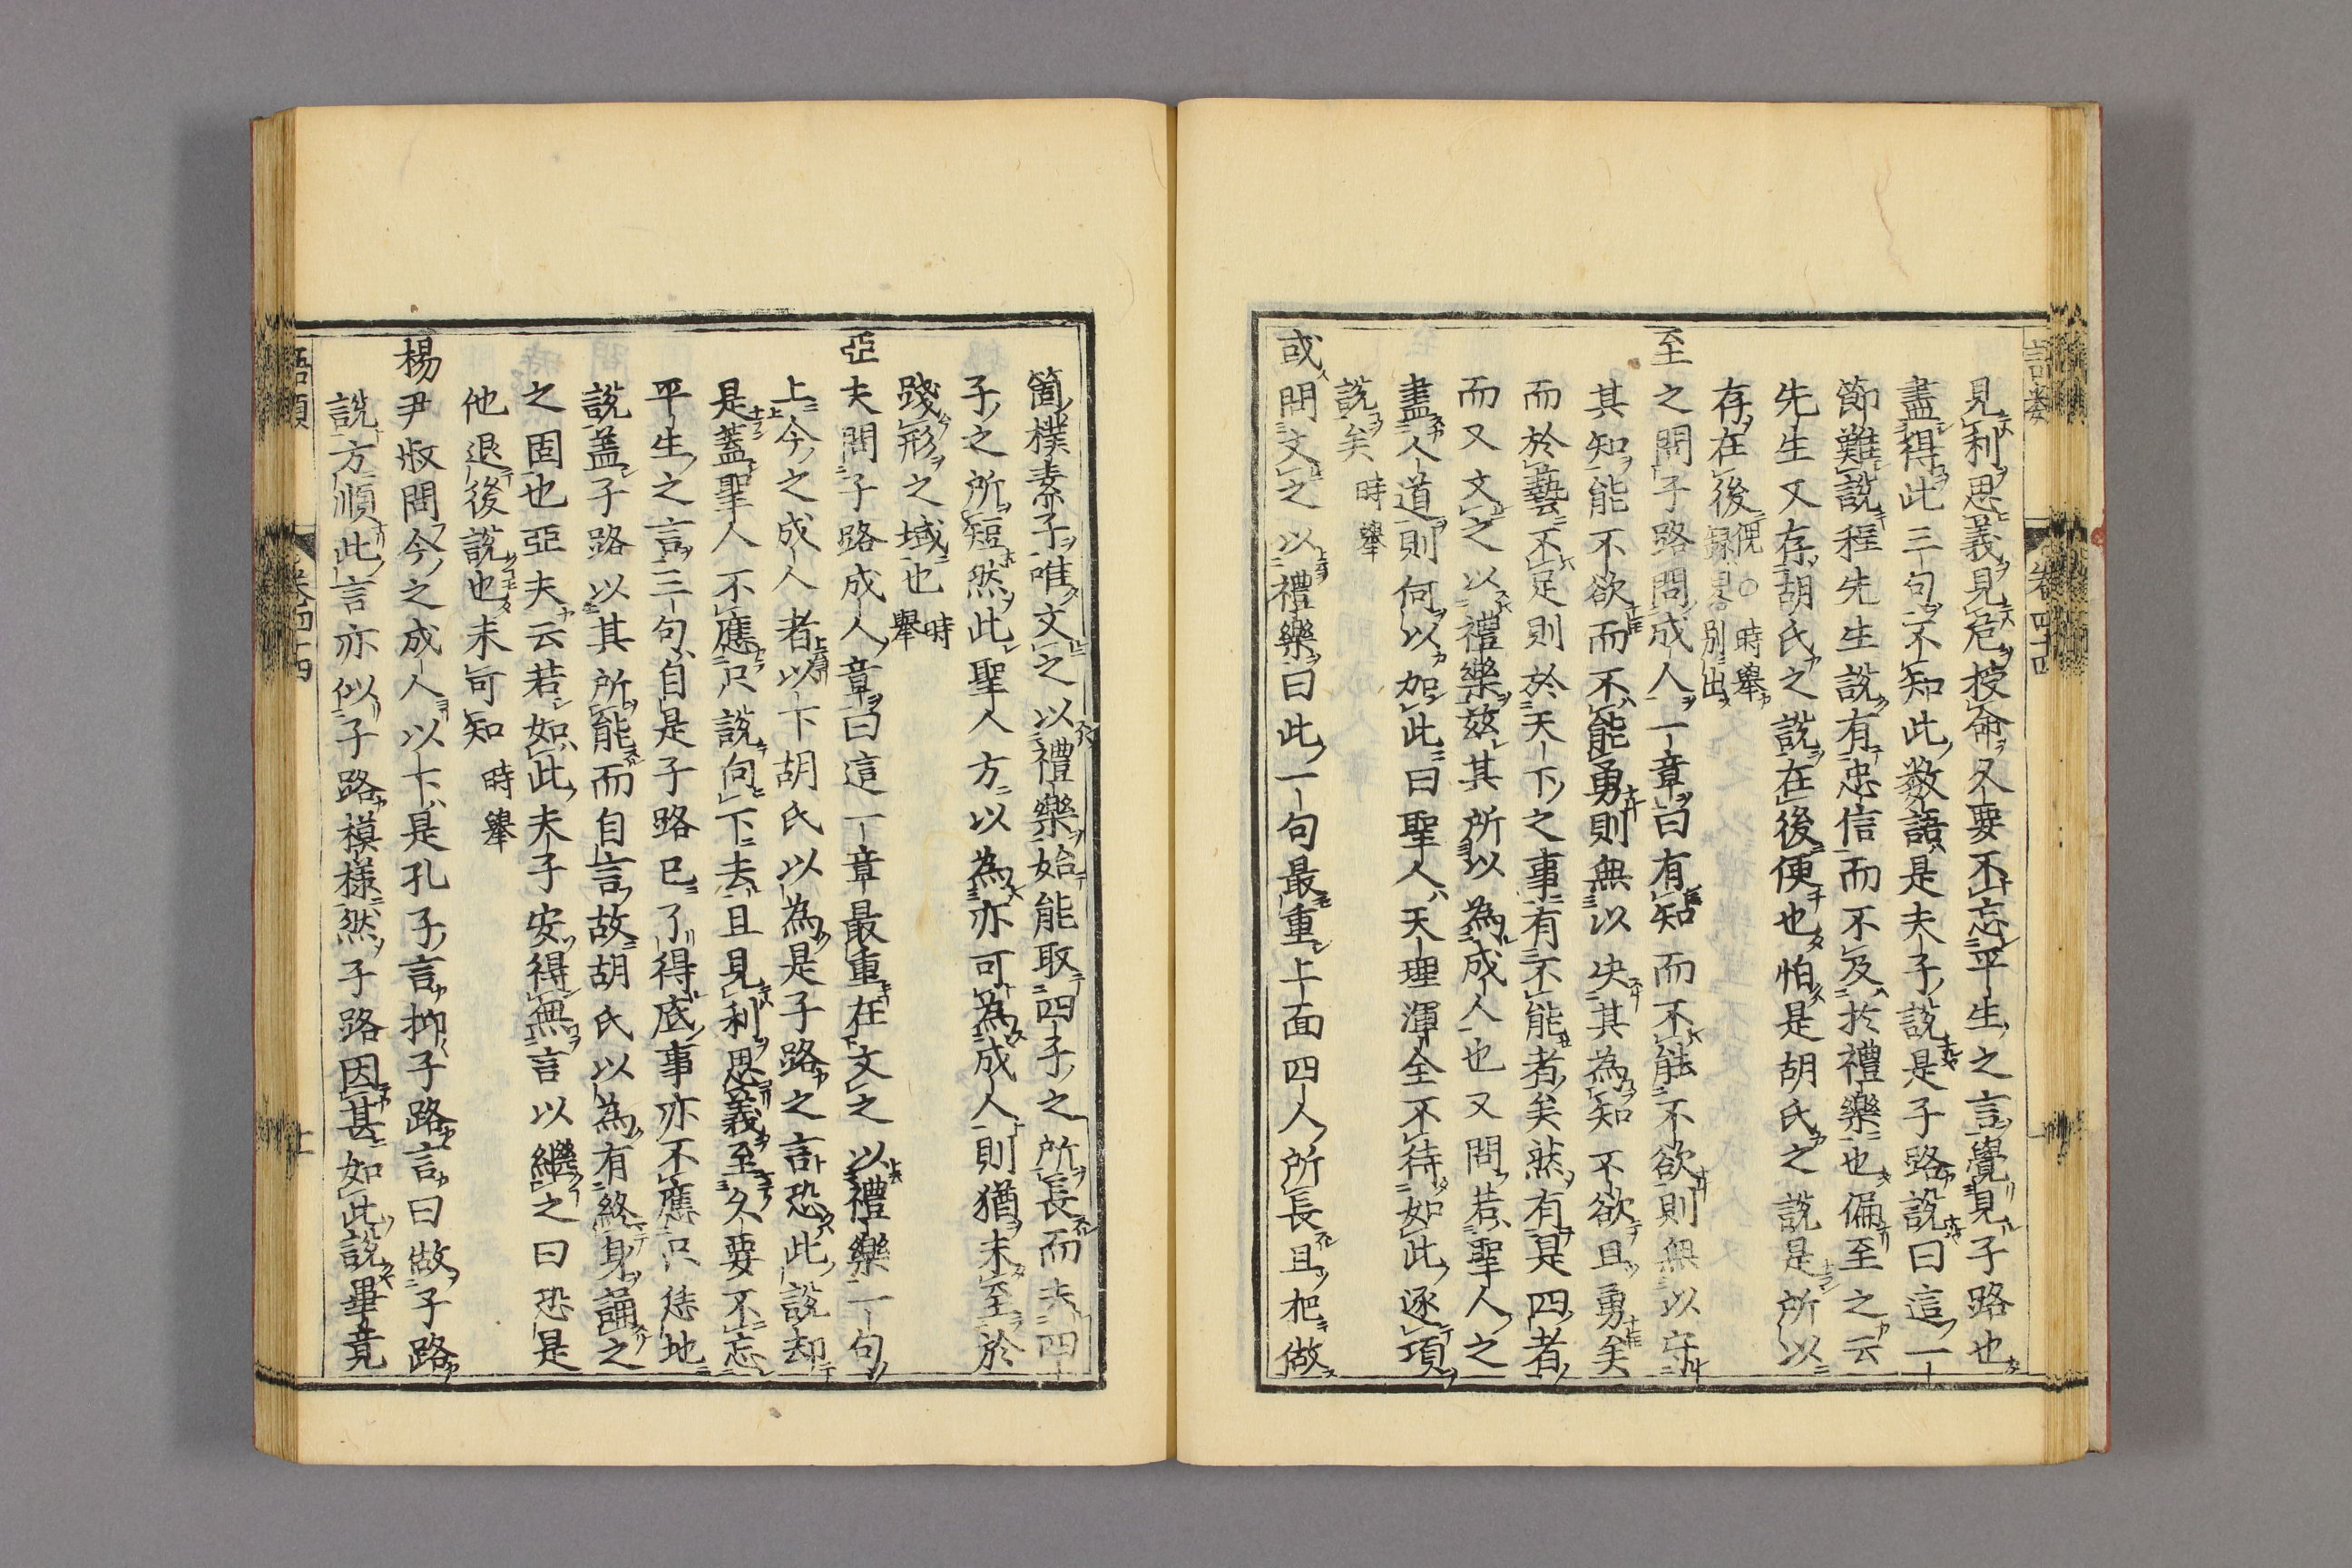 見利思義見危授命又要不忘平生之言覺見子路也
盡得此三句不知此數語是夫子說是子路說曰這一
節難說程先生說有忠信而不及於禮樂也偏至之云
先生又存胡氏之說在後便也怕是胡氏之說是所以
存在後僩○時舉
錄見別出
至之問子路問成人一章曰有知而不能不欲則無以守
其知能不欲而不能勇則無以决其為知不欲且勇矣
而於藝不足則於天下之事有不能者矣然有是四者
而又文之以禮樂玆其所以為成人也又問若聖人之
盡人道則何以加此曰聖人天理渾全不待如此逐項
說矣時舉
或問文之以禮樂曰此一句最重上面四人所長且把做
箇樸素子唯文之以禮樂始能取四子之所長而去四
子之所短然此聖人方以為亦可為成人則猶未至於
踐形之域也時舉
亞夫問子路成人章曰這一章最重在文之以禮樂一句
上今之成人者以下胡氏以為是子路之言恐此說却
是蓋聖人不應只說向下去且見利思義至久要不忘
平生之言三句自是子路已了得底事亦不應只恁地
說蓋子路以其所能而自言故胡氏以為有終身誦之
之固也亞夫云若如此夫子安得無言以繼之曰恐是
他退後說也未可知時舉
楊尹叔問今之成人以下是孔子言抑子路言曰做子路
說方順此言亦似子路模樣然子路因甚如此說畢竟
語類
卷四十四